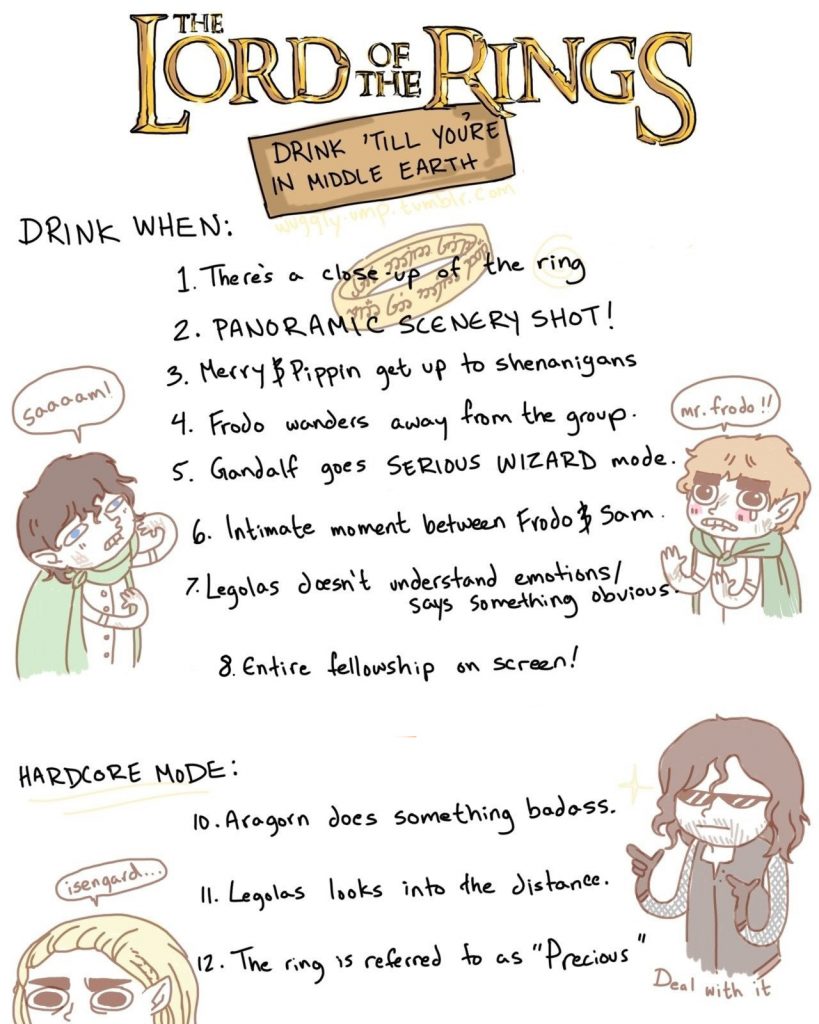 THE LORD OF THE RINGS
DRINK 'TILL YOU'RE
IN MIDDLE EARTH
wuggly-ump.tumblr.com
DRINK WHEN:
1. There's a close-up of the ring
2. PANORAMIC SCENERY SHOT!
3. Merry & Pippin get up to shenanigans
saaaam!
mr. frodo!!
4. Frodo wanders away from the group.
5. Gandalf goes SERIOUS WIZARD mode.
6. Intimate moment between Frodo & Sam.
7. Legolas doesn't understand emotions/
says something obvious.
8. Entire fellowship on screen!
HARDCORE MODE:
10. Aragorn does something badass.
isengard...
11. Legolas looks into the distance.
12. The ring is referred to as "Precious"
Deal with it